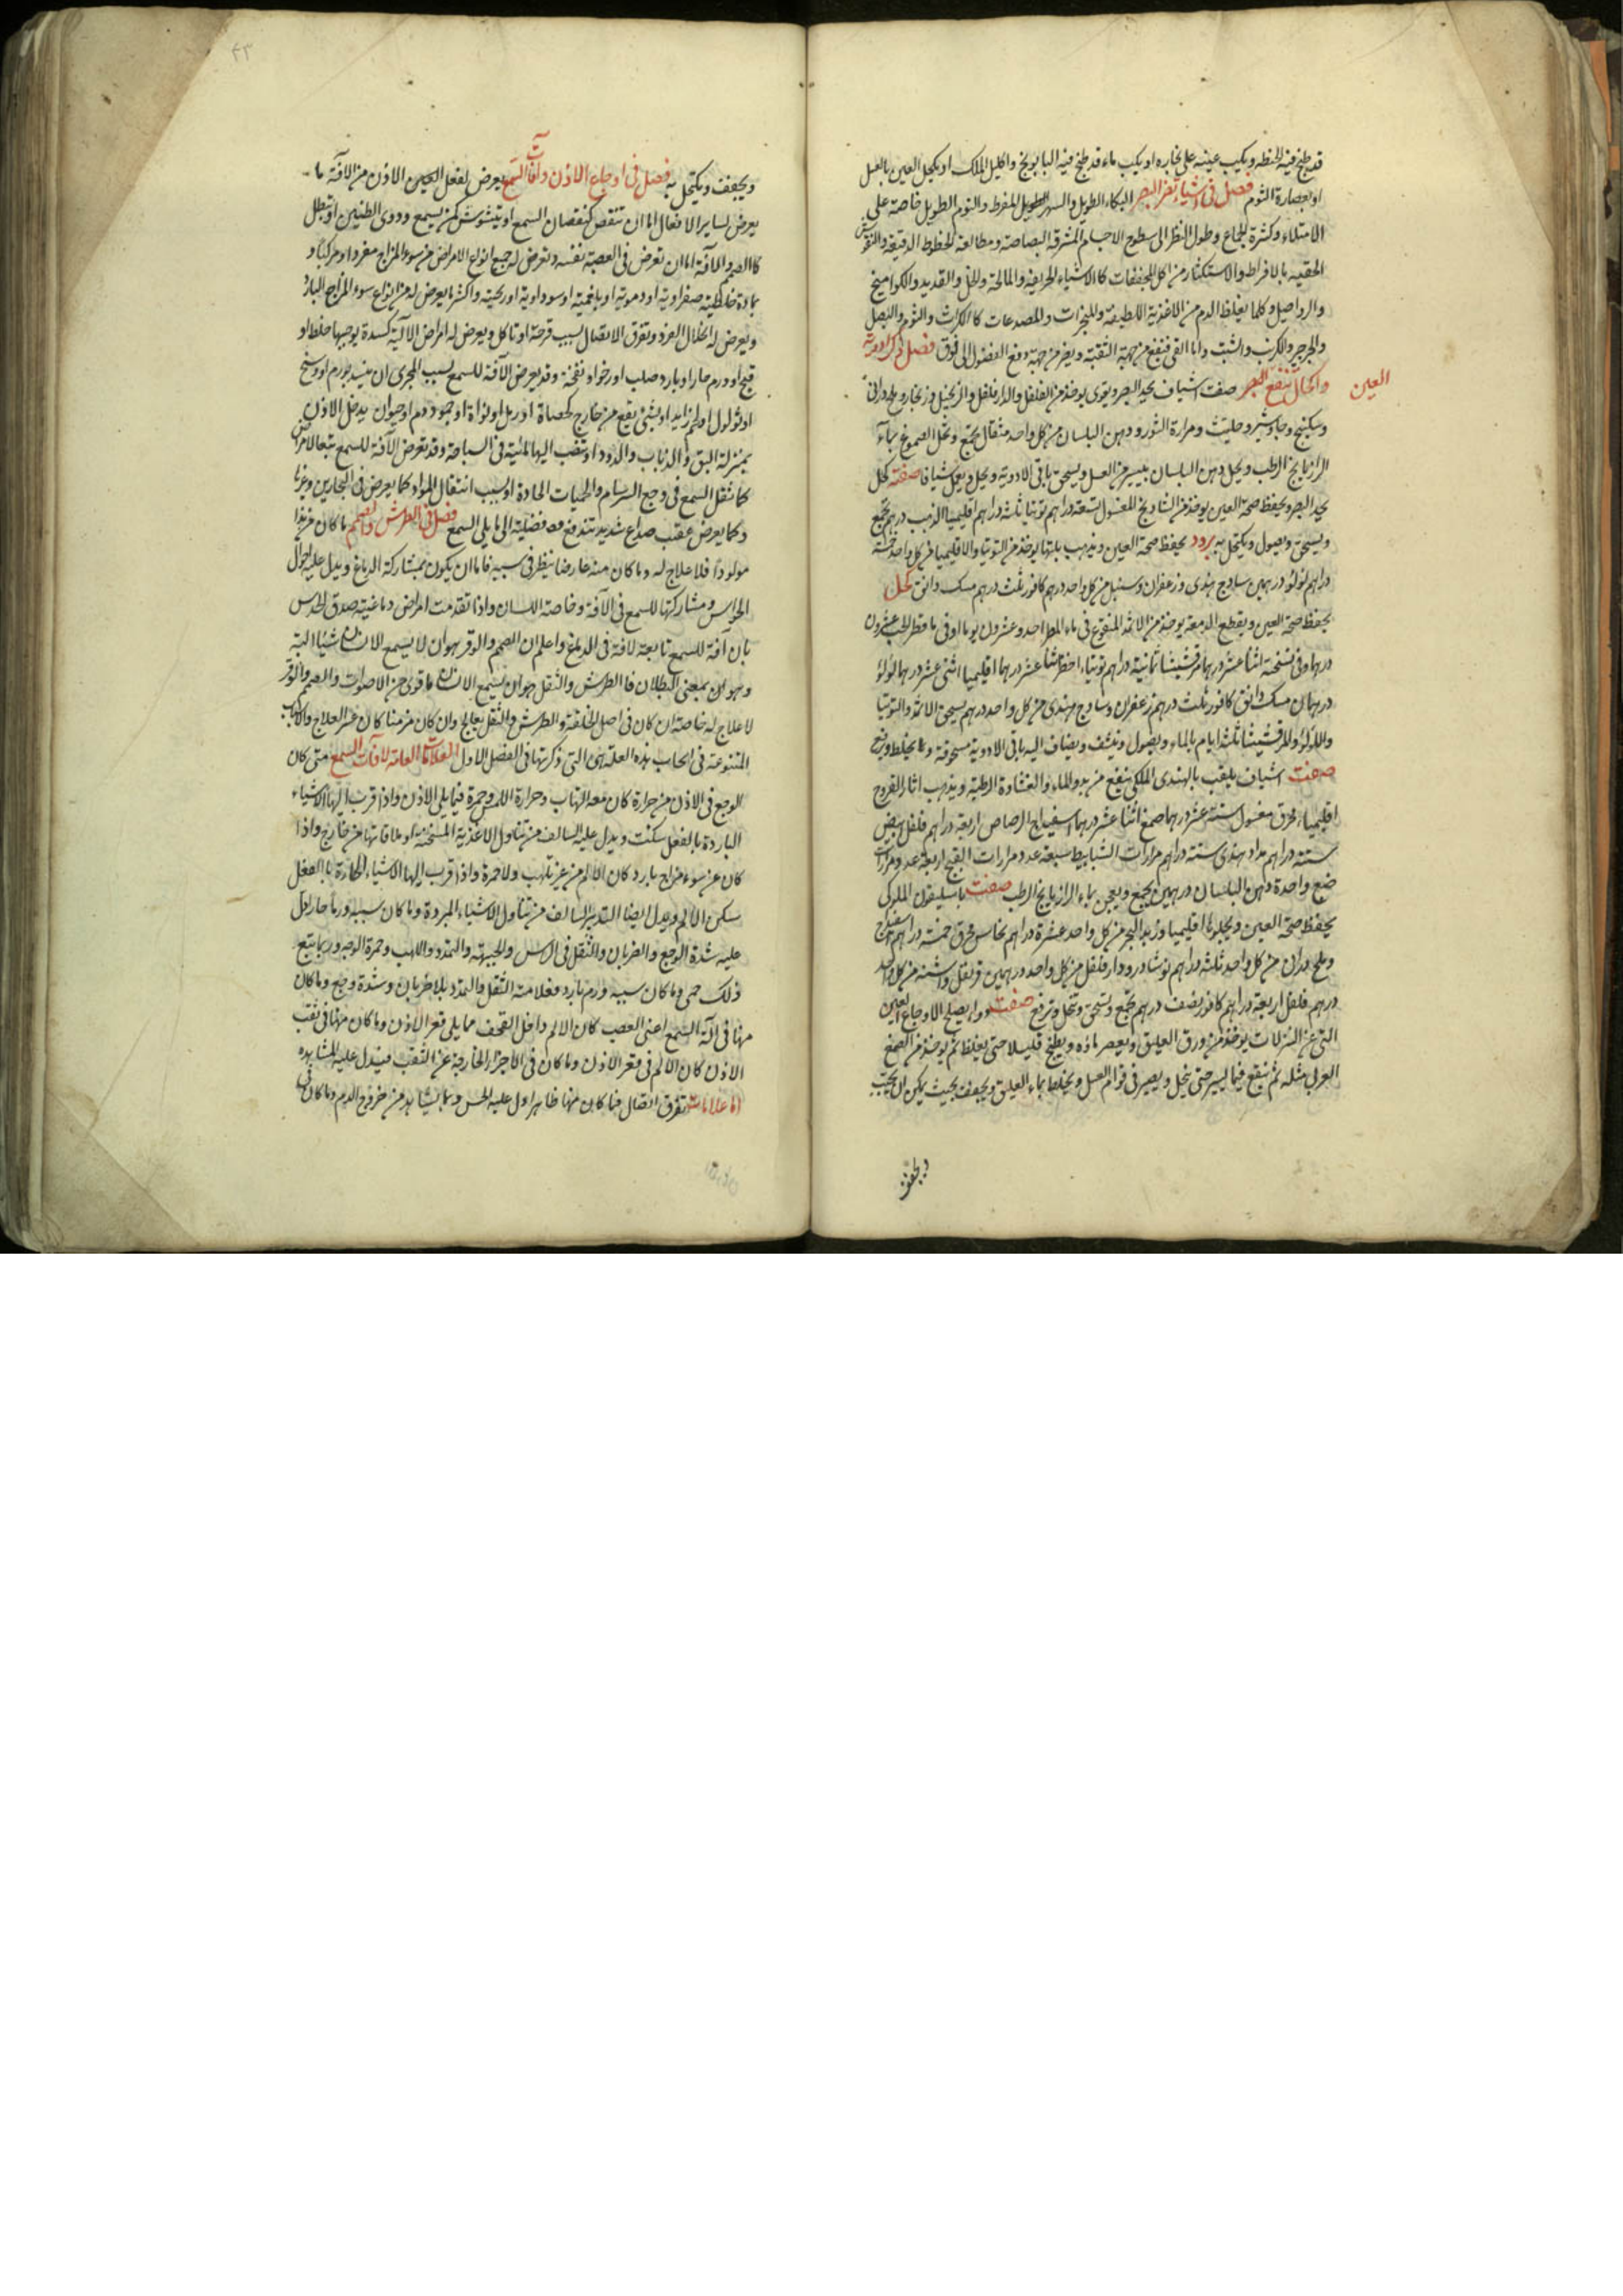 قد طبخ فيه الحنطه ويكب عينيه على بخاره او يكب ماء قد طبخ فيه البابونج واكليل الملك او يكحل العين بالعسل
او بعصارة الثوم فصل فى اشياء تضر البصر البكاء الطويل والسهر الطويل المفرط والنوم الطويل خاصة على
الامتلاء وكثرة الجماع وطول النظر الى سطوح الاجسام المشرقة البصاصة ومطالعة الخطوط الدقيقة والنقوش
بالافراط والاستكثار من اكل المجففات كالاشياء الحريفة والمالحة والخل والقديد والكواميخ
وكلما يغلظ الدم من الاغذية اللطيفة والمبخرات والمصدعات كالكراث والثوم والبصل
والجرجير والكرنب والشبت واما القى فينفع من جهة التنقية ويضر من جهة دفع الفضول الى فوق فصل فى ذكر ادوية
العين
واكحال تنفع البصر صفت اشياف يحد البصر ويقوى يوخذ من الفلفل والدارفلفل والزنجيل وزنجار
وسكبنج وجاوشير وحلتيت ومرارة الثور ودهن البلسان من كل واحد مثقال يجمع وتحل الصموغ بماء
الرازيانج الرطب ويحل دهن البلسان بيسير من العسل ويسحق باقى الادوية ويحل ويعمل شيافا صفة كحل
يحد البصر ويحفظ صحة العين يوخذ من الشادنج المغسول ستة دراهم توتيا ثلثة دراهم اقليميا الذهب درهم يجمع
ويسحق ويصول ويكتحل به برود يحفظ صحة العين ويذهب بلتها يوخذ من التوتيا والاقليميا من كل واحد خمسة
دراهم لولو درهمين سادج هندى وزعفران وسنبل من كل واحد درهم كافور ثلث درهم مسك دانق كحل
يحفظ صحة العين ويقطع الدمعة يوخذ من الاثمد المنقوع فى ماء المطر احد وعشرون يوما او فى ماء قطر الحب عشرون
درهما وفى نسخة اثنا عشر درهما مرقشيشا ثمانية دراهم توتياء اخضر اثنا عشر درهما اقليميا اثنى عشر درهما لولو
درهمان مسك دانق كافور ثلث درهم زعفران وسادج هندى من كل واحد درهم يسحق الاثمد والتوتيا
واللولو والمرقشيشا ثلثة ايام بالماء ويصول وينشف ويضاف اليه باقى الادوية مسحوقة ويخلط ويرفع
صفت اشياف يلقب بالهندى الملكى ينفع من بدو الماء والغشاوة الرطبة ويذهب اثار القروح
اقليمياء محرق مغسول ستة عشر درهما صمغ اثنا عشر درهما اسفيداج الرصاص اربعة دراهم فلفل ابيض
ستة دراهم مداد هندى ستة دراهم مرارات الشبابيط سبعة عدد مرارات القبج اربعة عدد ومرارة
ضبع واحدة دهن البلسان درهمين يجمع ويعجن بماء الرازيانج الرطب صفت باسليقون الملوكى
يحفظ صحة العين ويجلوها اقليميا وزبد البحر من كل واحد عشرة دراهم نحاس محرق خمسة دراهم اسفيداج
وملح من كل واحد ثلثة دراهم نوشادر ودارفلفل من كل واحد درهمين قرنفل واشنه من كل واحد
درهم فلفل اربعة دراهم كافور نصف درهم يجمع ويسحق وتنخل وترفع صفت دواء يصلح لاوجاع العين
التى عن النزلات يوخذ من ورق العليق ويعصر ماؤه ويطبخ قليلا حتى يغلظ ثم يوخذ من الصمغ
العربى مثله ثم ينقع فيما يسير حتى ينحل ويصير فى قوام العسل ويخلط بماء العليق ويجفف بحيث يمكن ان يحبب
ويجفف
٤٣
ويجفف ويكتحل به فصل فى اوجاع الاذن وآفات السمع يعرض لفعل الاذن من الافة ما
يعرض لساير الافعال اما ان تنقص كنقصان السمع او يتشوش كمن يسمع دوى الطنين او تبطل
كالصمم والآفة اما ان تعرض فى العصبة نفسه وتعرض له جميع انواع الامراض من سوء المزاج مفردا ومركبا
بمادة خلطية صفراوية او دموية او بلغمية او سوداوية او ريحية واكثر ما يعرض له من انواع سوء المزاج البارد
ويعرض له انحلال الفرد وتفرق الاتصال بسبب قرحة او تاكل ويعرض له امراض الالية كسدة يوجبها خلط او
قيح او ورم حار او بارد صلب او رخو او نفخة وقد يعرض الآفة للسمع بسبب المجرى ان ينسد بورم او وسخ
او ثولول او لحم زايد او بشى يقع من خارج كحصاة او رمل او نواة او جمود دم او حيوان يدخل الاذن
بمنزلة البق والذباب والدود او تنصب اليها المائية فى السباحة وقد تعرض الآفة للسمع تبعا لامراض
كما ثقل السمع فى وجع السرسام والحميات الحادة او بسبب انتقال المواد كما يعرض فى البحارين وغيرها
وكما يعرض عقيب صداع شديد تندفع معه فضلية الى ما يلى السمع فصل فى الطرش والصمم ما كان من هذا
مولودا فلا علاج له وما كان منه عارضا ينظر فى سببه فاما ان يكون بمشاركة الدماغ ويدل عليه احوال
الحواس ومشاركتها للسمع فى الآفة وخاصة اللسان واذا تقدمت امراض دماغية صدق الحدس
بان آفة السمع تابعة لافة فى الدماغ واعلم ان الصمم والوقر هو ان لا يسمع الانسان شيئا البتة
وهو ان بمعنى البطلان فالطرش والثقل هو ان يسمع الانسان ما قوى من الاصوات والصمم والوقر
لا علاج له خاصة ان كان فى اصل الخلقة والطرش والثقل يعالج وان كان مزمنا كان عسر العلاج والاسباب
المتنوعة فى ايجاب هذه العلة هى التى ذكرتها فى الفصل الاول العلامات العامة لآفات السمع متى كان
الوجع فى الاذن من حرارة كان معه التهاب وحرارة اللمس وحمرة فيما يلى الاذن واذا قرب اليها الاشياء
الباردة بالفعل سكنت ويدل عليه السالف من تناول الاغذية المسخنة او ملاقاتها من خارج واذا
كان عن سوء مزاج بارد كان الالم من غير تلهب ولا حمرة واذا قرب اليها الاشياء الحارة بالفعل
سكن الالم ويدل ايضا التدبير السالف من تناول الاشياء المبردة وما كان سببه ورما حارا دل
عليه شدة الوجع والضربان والثقل فى الراس والجبهة والتمدد واللهب وحمرة الوجه وربما تبع
ذلك حمى وما كان سببه ورم بارد فعلامته الثقل والتمدد بلا ضربان وشدة وجع وما كان
منها فى آلة السمع اعنى العصب كان الالم داخل القحف مما يلى قعر الاذن وما كان منها فى ثقب
الاذن كان الالم فى قعر الاذن وما كان فى الاجزاء الخارجة عن الثقب فيدل عليه المشاهدة
اما علامات تفرق اتصال فما كان منها ظاهرا دل عليه الحس وبما يشاهد من خروج الدم وما كان فى